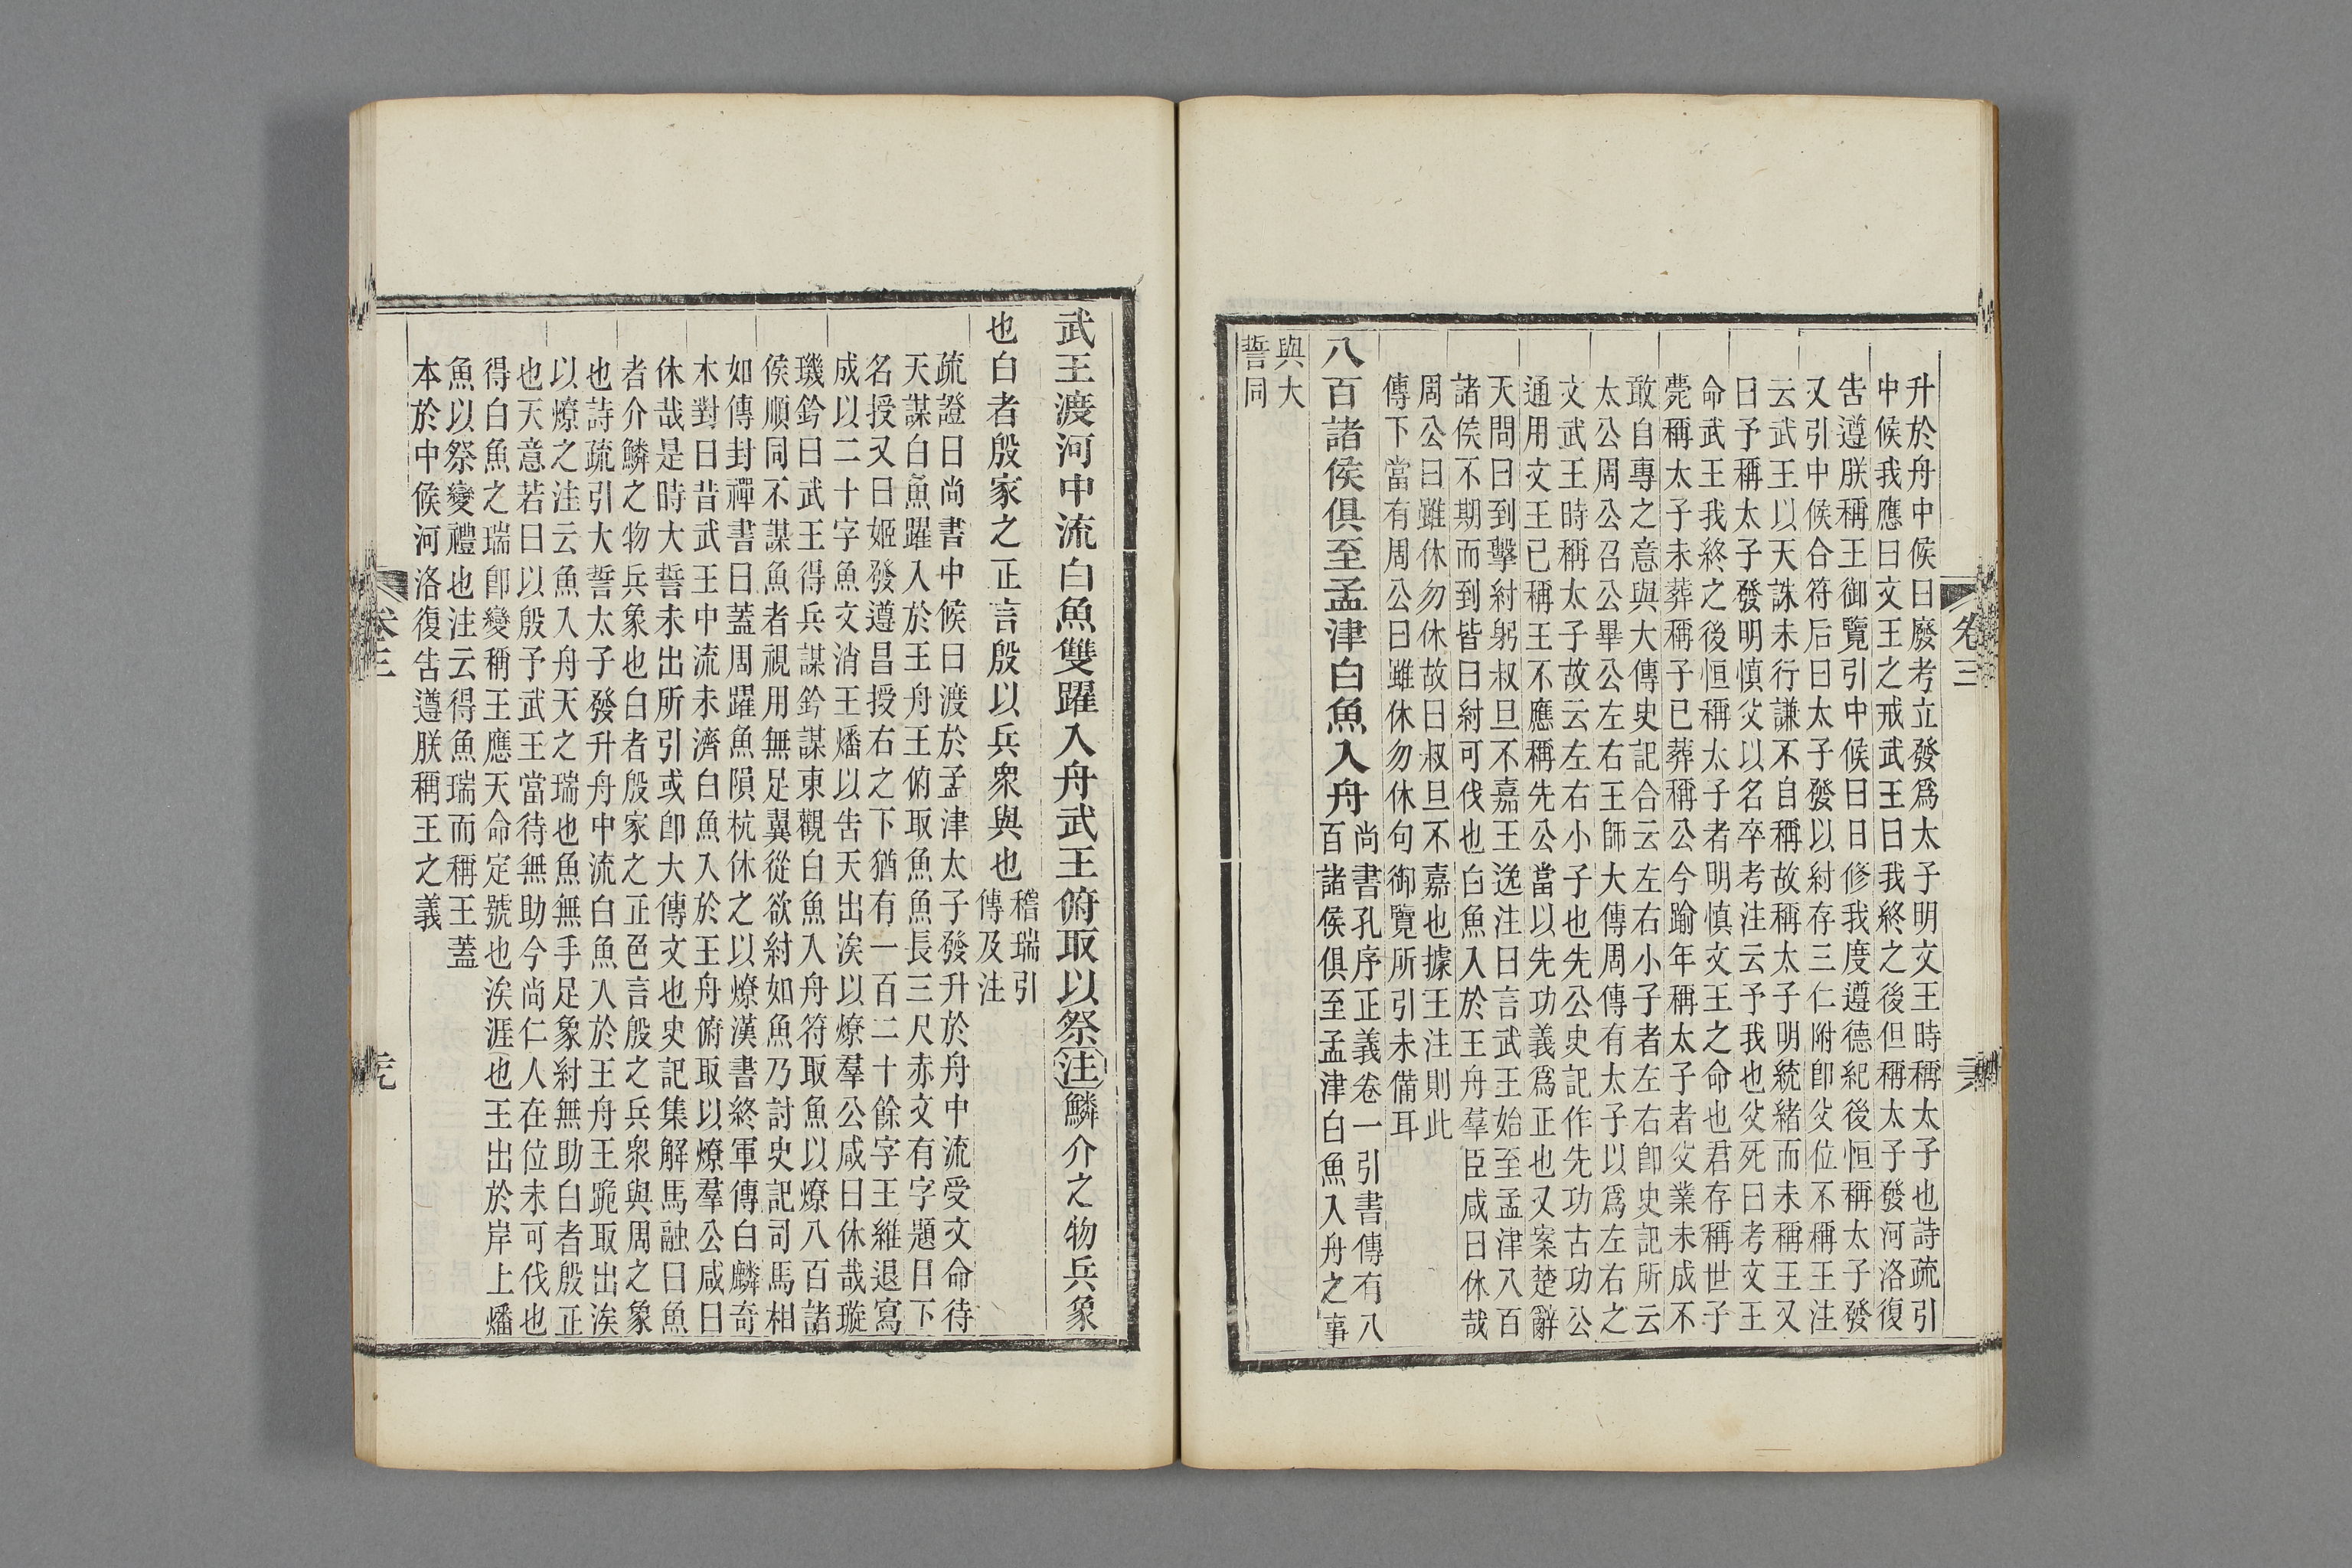 升於舟中候曰廢考立發爲太子明文王時稱太子也詩疏引
中候我應曰文王之戒武王曰我終之後但稱太子發河洛復
告遵朕稱王御覽引中候曰日修我度遵德紀後恒稱太子發
又引中候合符后曰太子發以紂存三仁附卽父位不稱王注
云武王以天誅未行謙不自稱故稱太子明統緒而未稱王又
曰予稱太子發明慎父以名卒考注云予我也父死曰考文王
命武王我終之後恒稱太子者明慎文王之命也君存稱世子
薨稱太子未葬稱子已葬稱公今踰年稱太子者父業未成不
敢自專之意與大傳史記合云左右小子者左右卽史記所云
太公周公召公畢公左右王師大傳周傳有太子以爲左右之
文武王時稱太子故云左右小子也先公史記作先功古功公
通用文王已稱王不應稱先公當以先功義爲正也又案楚辭
天問曰到擊紂躬叔旦不嘉王逸注曰言武王始至孟津八百
諸侯不期而到皆曰紂可伐也白魚入於王舟羣臣咸曰休哉
周公曰雖休勿休故曰叔旦不嘉也據王注則此
傳下當有周公曰雖休勿休句御覽所引未備耳
八百諸侯俱至孟津白魚入舟
尚書孔序正義卷一引書傳有八
百諸侯俱至孟津白魚入舟之事
與大
誓同
卷三
武王渡河中流白魚雙躍入舟武王俯取以祭注鱗介之物兵象
也白者殷家之正言殷以兵衆與也
稽瑞引
傳及注
疏證曰尚書中候曰渡於孟津太子發升於舟中流受文命待
天謀白魚躍入於王舟王俯取魚魚長三尺赤文有字題目下
名授又曰姬發遵昌授右之下猶有一百二十餘字王維退寫
成以二十字魚文消王燔以告天出涘以燎羣公咸曰休哉璇
璣鈐曰武王得兵謀鈐謀東觀白魚入舟符取魚以燎八百諸
侯順同不謀魚者視用無足翼從欲紂如魚乃討史記司馬相
如傳封禪書曰蓋周躍魚隕杭休之以燎漢書終軍傳白麟奇
木對曰昔武王中流未濟白魚入於王舟俯取以燎羣公咸曰
休哉是時大誓未出所引或卽大傳文也史記集解馬融曰魚
者介鱗之物兵象也白者殷家之正色言殷之兵衆與周之象
也詩疏引大誓太子發升舟中流白魚入於王舟王跪取出涘
以燎之注云魚入舟天之瑞也魚無手足象紂無助白者殷正
也天意若曰以殷予武王當待無助今尚仁人在位未可伐也
得白魚之瑞卽變稱王應天命定號也涘涯也王出於岸上燔
魚以祭變禮也注云得魚瑞而稱王蓋
本於中候河洛復告遵朕稱王之義
卷三